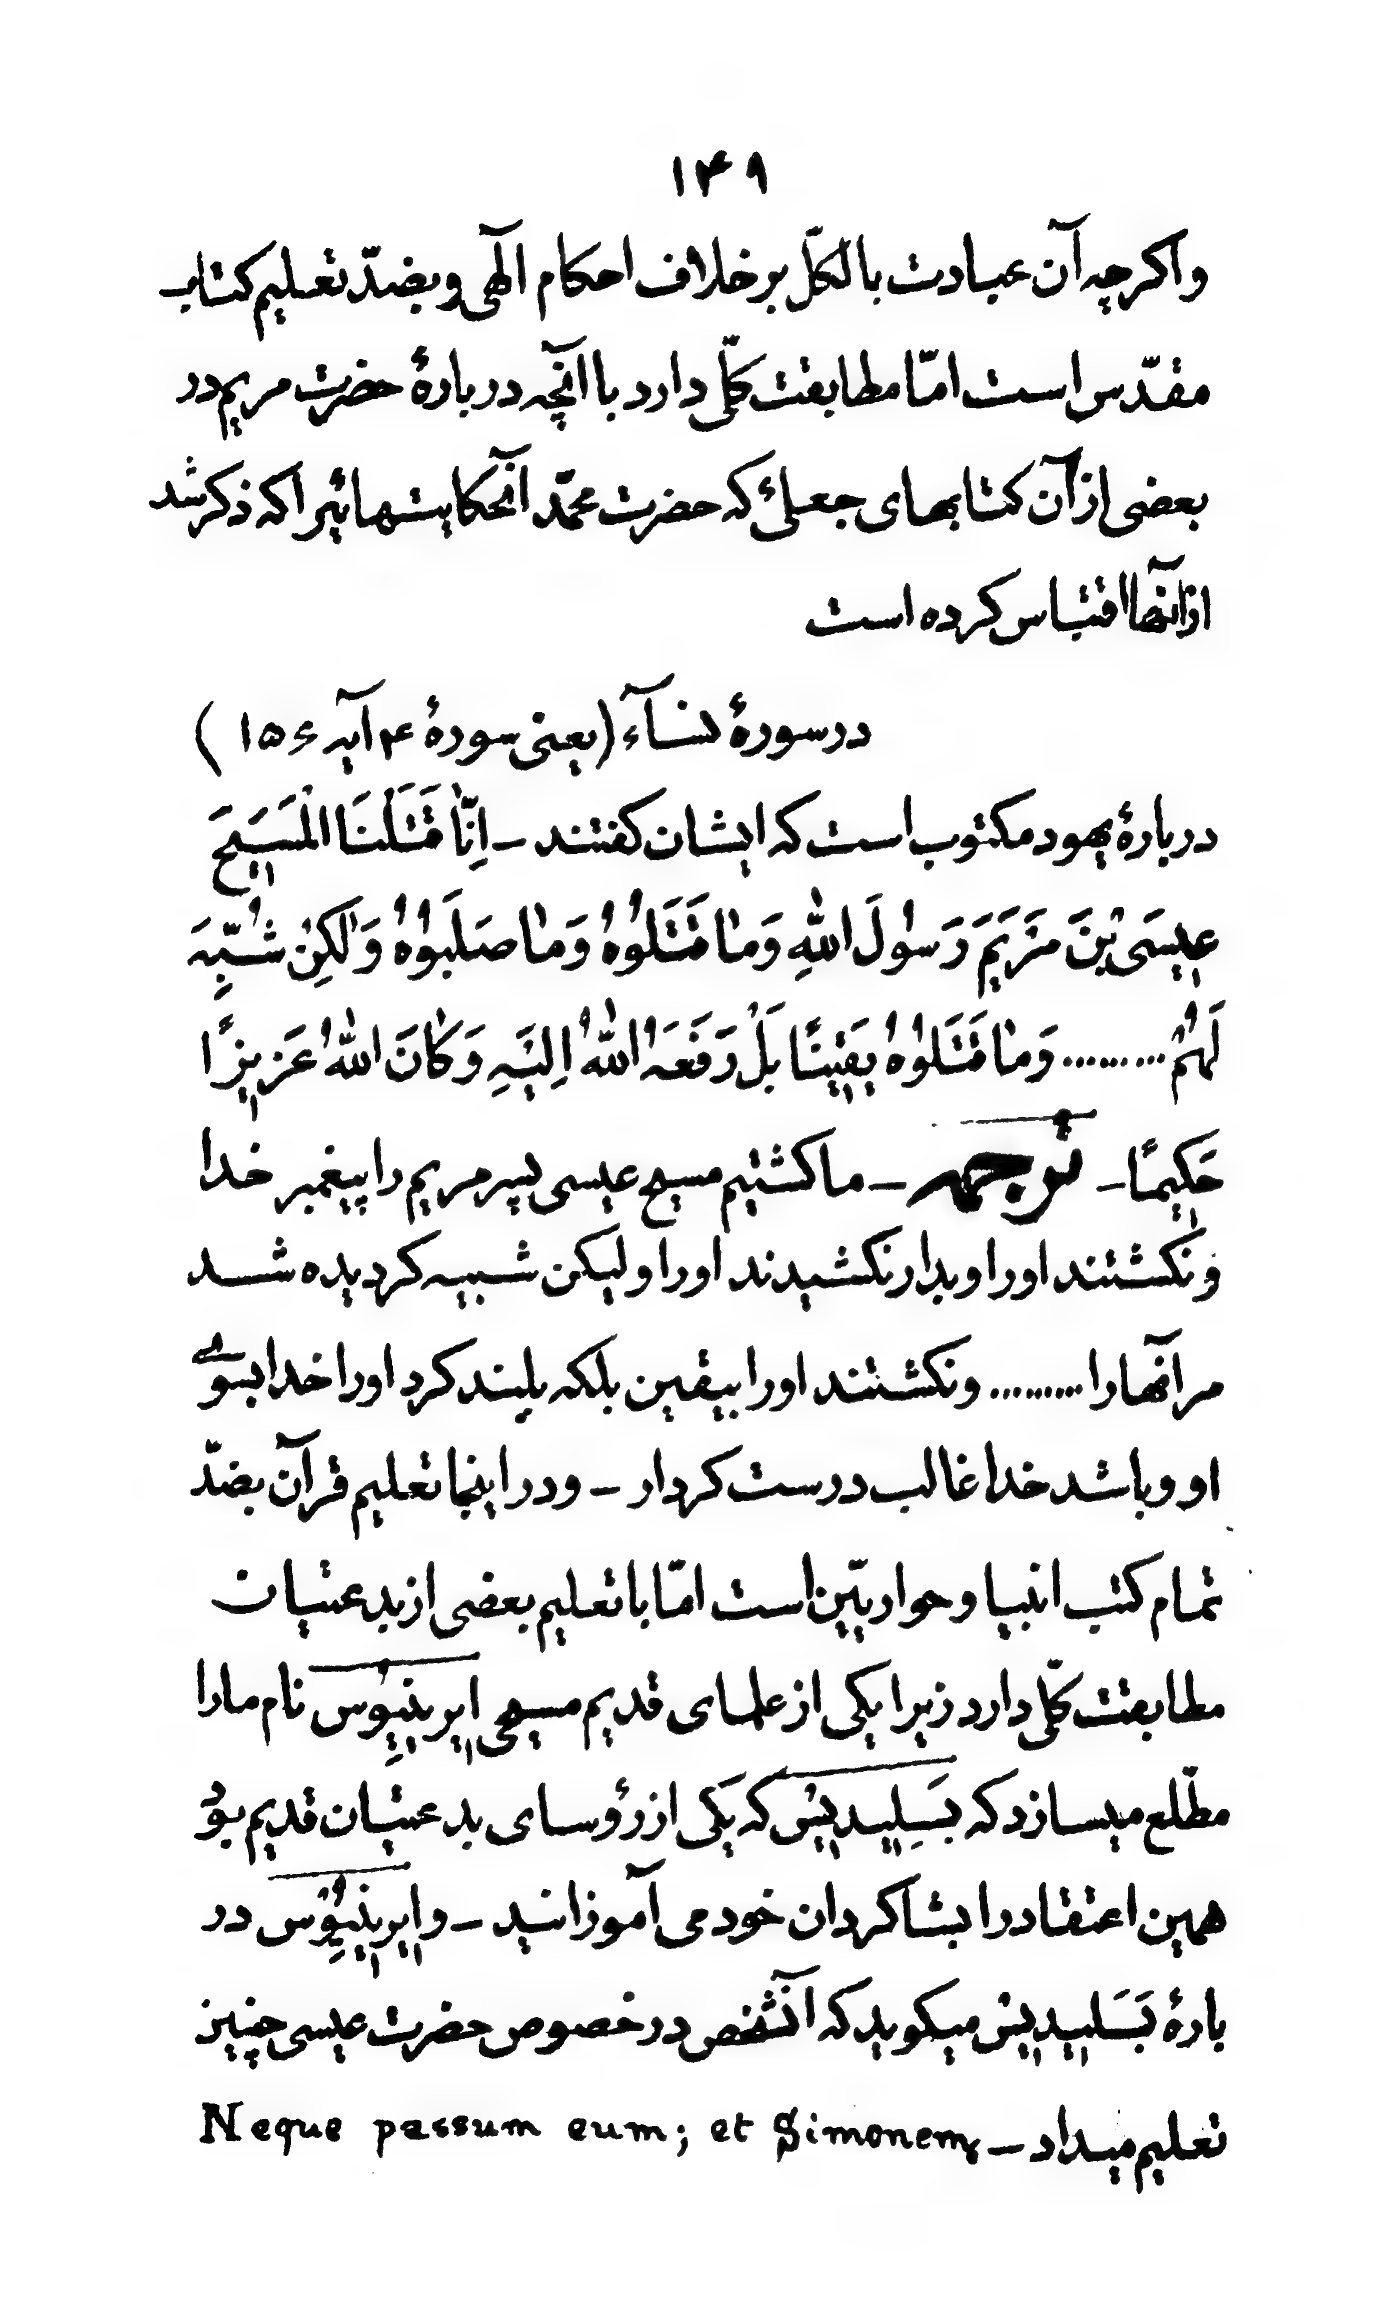 ۱۴۹
واکرچه آن عبادت بالکلّ بر خلاف احکام الٓهی و بضدّ تعلیم کتاب
مقدّس است امّا مطابقت کلّی دارد با آنچه در بارهٔ حضرت مریم در
بعضی از آن کتابهای جعلیٔ که حضرت محمّد آنحکایتهائیرا که ذکر شد
از آنها اقتباس کرده است
در سورهٔ نسآء (یعنی سورهٔ ۴ آیه ۱۵۶ )
در بارهٔ یهود مکتوب است که ایشان کفتند ــ اِنّٰا قَتَلْنَا الْمَسیٖحَ
عیٖسَی بْنَ مَرْیَمَ رَسُولَ اللّٰهِ وَمٰا قَتَلُوْهُ وَمٰا صَلَبُوْهُ وَلٰکِنْ شُبِّهَ
لَهُمْ ......... وَمٰا قَتَلُوْهُ یَقیٖنًا بَلْ رَفَعَهُ اللّٰهُ اِلَیْهِ وَکٰانَ اللّٰهُ عَزیٖزًا
حَکیٖمًا ــ ترجمه ــ ما کشتیم مسیح عیسی پسر مریم را پیغمبر خدا
و نکشتند اورا و بدار نکشیدند اورا ولیکن شبیه کردیده شد
مر آنهارا ......... و نکشتند اورا بیقین بلکه بلند کرد اورا خدا بسوے
او و باشد خدا غالب درست کردار ــ و در اینجا تعلیم قرآن بضدّ
تمام کتب انبیا و حواریّین است امّا با تعلیم بعضی از بدعتیان
مطابقت کلّی دارد زیرا یکی از علمای قدیم مسیحی ایٖریٖنیِوُس نام مارا
مطّلع میسازد که بَسَلِیٖدیٖسْ که یَکی از رؤسای بدعتیان قدیم بوُد
همین اعتقاد را بشاکردان خود می آموزانید ــ و ایٖریٖنیِوُسْ در
بارهٔ بَسَلیٖدیٖسْ میکوید که آنشخص در خصوص حضرت عیسی چنین
تعلیم میداد ــ Neque passum eum; et Simonem